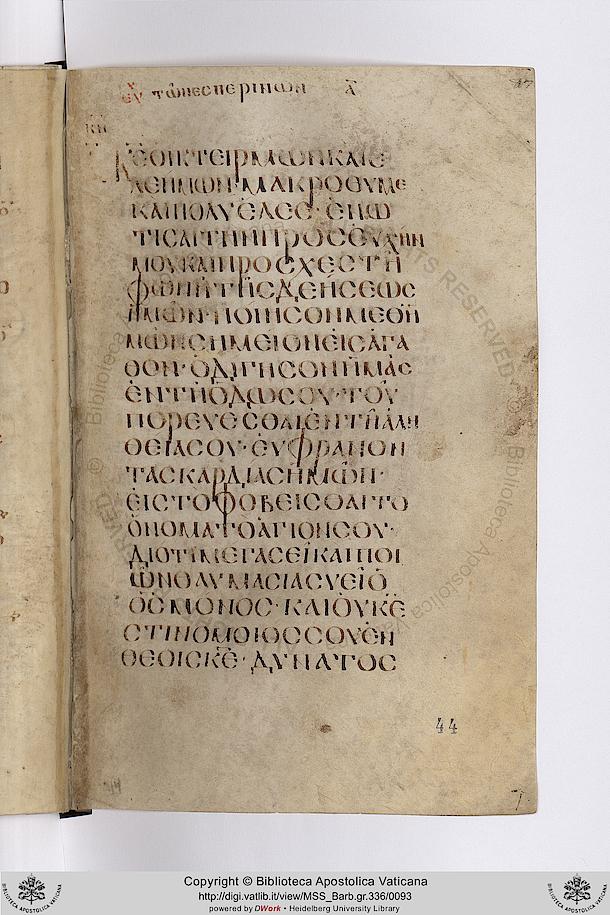 εὐχ τῶν ἑσπερινῶν Α
ΚΕΟΙΚΤΕΙΡΜΩΝΚΑΙΕ
ΛΕΗΜΩΝ·ΜΑΚΡΟΘΥΜΕ
ΚΑΙΠΟΛΥΕΛΕΕ·ΕΝΩ
ΤΙΣΑΙΤΗΝΠΡΟΣΕΥΧΗΝ
ΜΟΥΚΑΙΠΡΟΣΧΕΣΤΗ
ΦΩΝΗΤΗΣΔΕΗΣΕΩΣ
ΗΜΩΝ·ΠΟΙΗΣΟΝΜΕΘΗ
ΜΩΝΣΗΜΕΙΟΝΕΙΣΑΓΑ
ΘΟΝ·ΟΔΗΓΗΣΟΝΗΜΑΣ
ΕΝΤΗΟΔΩΣΟΥ·ΤΟΥ
ΠΟΡΕΥΕΣΘΑΙΕΝΤΗΑΛΗ
ΘΕΙΑΣΟΥ·ΕΥΦΡΑΝΟΝ
ΤΑΣΚΑΡΔΙΑΣΗΜΩΝ·
ΕΙΣΤΟΦΟΒΕΙΣΘΑΙΤΟ
ΟΝΟΜΑΤΟΑΓΙΟΝΣΟΥ·
ΔΙΟΤΙΜΕΓΑΣΕΙΚΑΙΠΟΙ
ΩΝΘΑΥΜΑΣΙΑΣΥΕΙΟ
ΘΣΜΟΝΟΣ·ΚΑΙΟΥΚΕ
ΣΤΙΝΟΜΟΙΟΣΣΟΥΕΝ
ΘΕΟΙΣΚΕ·ΔΥΝΑΤΟΣ
44
Copyright © Biblioteca Apostolica Vaticana
http://digi.vatlib.it/view/MSS_Barb.gr.336/0093
powered by DWork • Heidelberg University Library